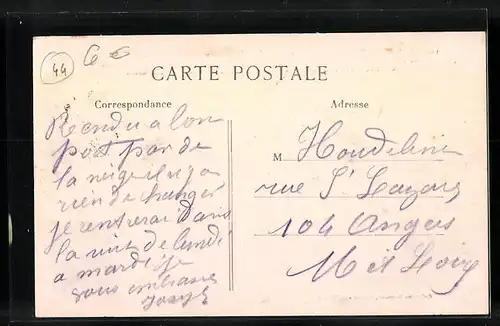 44
6 €
CARTE POSTALE
Correspondance
Adresse
Rendu a bon
port par de
la neige il n'y a
rien de changer
je rentrerai dans
la nuit de lundi
a mardi je
vous embrasse
Joseph
M Houdeline
rue St Lazare
104 Angers
M et Loire